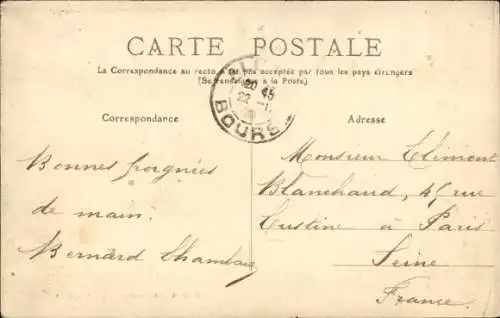 CARTE POSTALE
La Correspondance au recto n'est pas acceptée par tous les pays étrangers
(Se renseigner à la Poste)
20 45
22
BOURS
Correspondance
Adresse
Bonnes poignées
de main.
Bernard Chambaz
Monsieur Clément
Blanchaud, 45 rue
Custine à Paris
Seine
France.